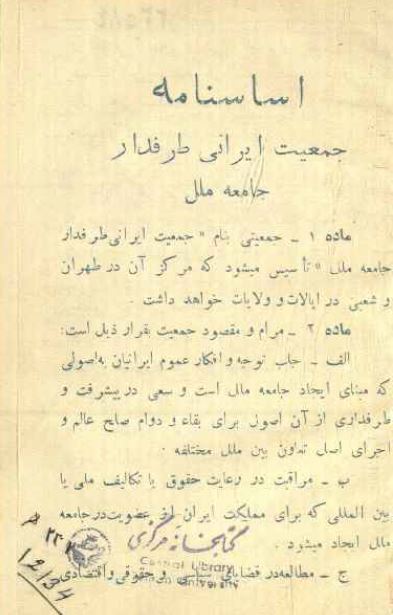 اساسنامه
جمعیت ایرانی طرفدار
جامعه ملل
ماده ۱ ـ جمعیتی بنام « جمعیت ایرانی طرفدار
جامعه ملل » تأسیس میشود که مرکز آن در طهران
و شعبی در ایالات و ولایات خواهد داشت .
ماده ۲ ـ مرام و مقصود جمعیت بقرار ذیل است:
الف ـ جلب توجه و افکار عموم ایرانیان باصولی
که مبنای ایجاد جامعه ملل است و سعی در پیشرفت و
طرفداری از آن اصول برای بقاء و دوام صلح عالم و
اجرای اصل تعاون بین ملل مختلفه .
ب ـ مراقبت در رعایت حقوق یا تکالیف ملی یا
بین المللی که برای مملکت ایران از عضویت در جامعه
ملل ایجاد میشود .
ج ـ مطالعه در قضایای سیاسی و حقوقی و اقتصادی
کتابخانه مرکزی
Central Library
University
12134